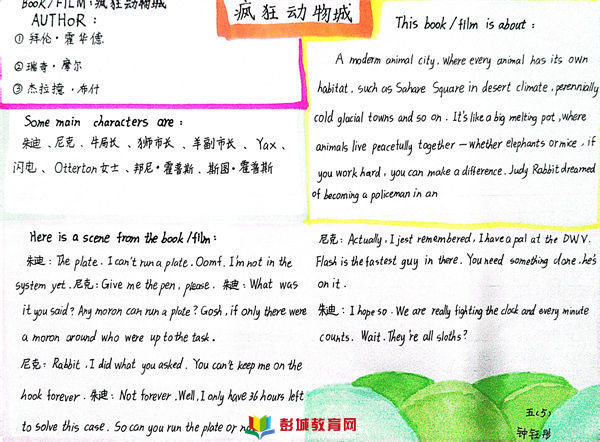 BOOK/FILM:疯狂动物城
AUTHOR:
① 拜伦·霍华德
② 瑞奇·摩尔
③ 杰拉撞·布什
疯狂动物城
This book/film is about:
A modern animal city. Where every animal has its own
habitat, such as Sahare Square in desert climate, perennially
cold glacial towns and so on. It's like a big melting pot, where
animals live peacefully together — whether elephants or mice, if
you work hard, you can make a difference. Judy Rabbit dreamed
of becoming a policeman in an
Some main characters are:
朱迪、尼克、牛局长、狮市长、羊副市长、Yax、
闪电、Otterton女士、邦尼·霍普斯、斯图·霍普斯
Here is a scene from the book/film:
朱迪: The plate. I can't run a plate. Oomf. I'm not in the
system yet. 尼克: Give me the pen, please. 朱迪: What was
it you said? Any moron can run a plate? Gosh, if only there were
a moron around who were up to the task.
尼克: Rabbit, I did what you asked. You can't keep me on the
hook forever. 朱迪: Not forever. Well, I only have 36 hours left
to solve this case. So can you run the plate or no
尼克: Actually, I jest remembered, I have a pal at the DWV.
Flash is the fastest guy in there. You need something done. he's
on it.
朱迪: I hope so. We are really fighting the clock and every minute
counts. Wait. They're all sloths?
五(5)
钟钰彤
彭城教育网